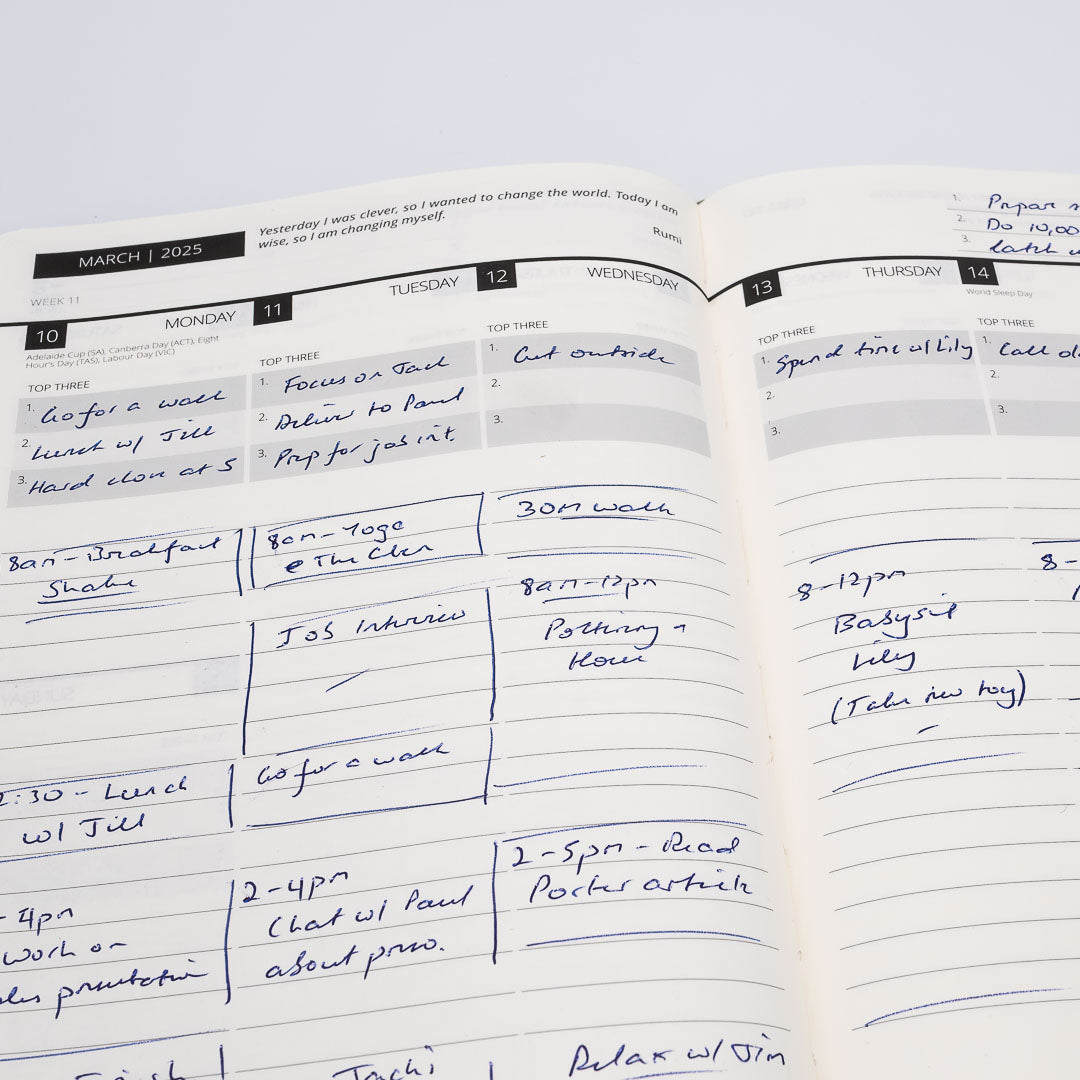 Yesterday I was clever, so I wanted to change the world. Today I am
wise, so I am changing myself.
Rumi
MARCH | 2025
WEEK 11
10 MONDAY
Adelaide Cup (SA), Canberra Day (ACT), Eight
Hour's Day (TAS), Labour Day (VIC)
TOP THREE
1. Go for a walk
2. Lunch w/ Jill
3. Hard close at 5
8am - Breakfast
Shake
2:30 - Lunch
w/ Jill
- 4pm
work on
presentation
Finish
11 TUESDAY
TOP THREE
1. Focus on Task
2. Deliver to Paul
3. Prep for job int.
8am - Yoga
@ The
Job Interview
Go for a walk
2-4pm
Chat w/ Paul
about preso.
12 WEDNESDAY
TOP THREE
1. Get outside
2.
3.
30m walk
8am-12pm
Pottering
Home
2-5pm - Read
Porter article
Relax w/ Jim
13 THURSDAY
TOP THREE
1. Spend time w/ Lily
2.
3.
8-12pm
Babysit
Lily
(Take new toy)
1. Prepare
2. Do 10,00
3. Catch
14
World Sleep Day
TOP THREE
1. Call
2.
3.
8-